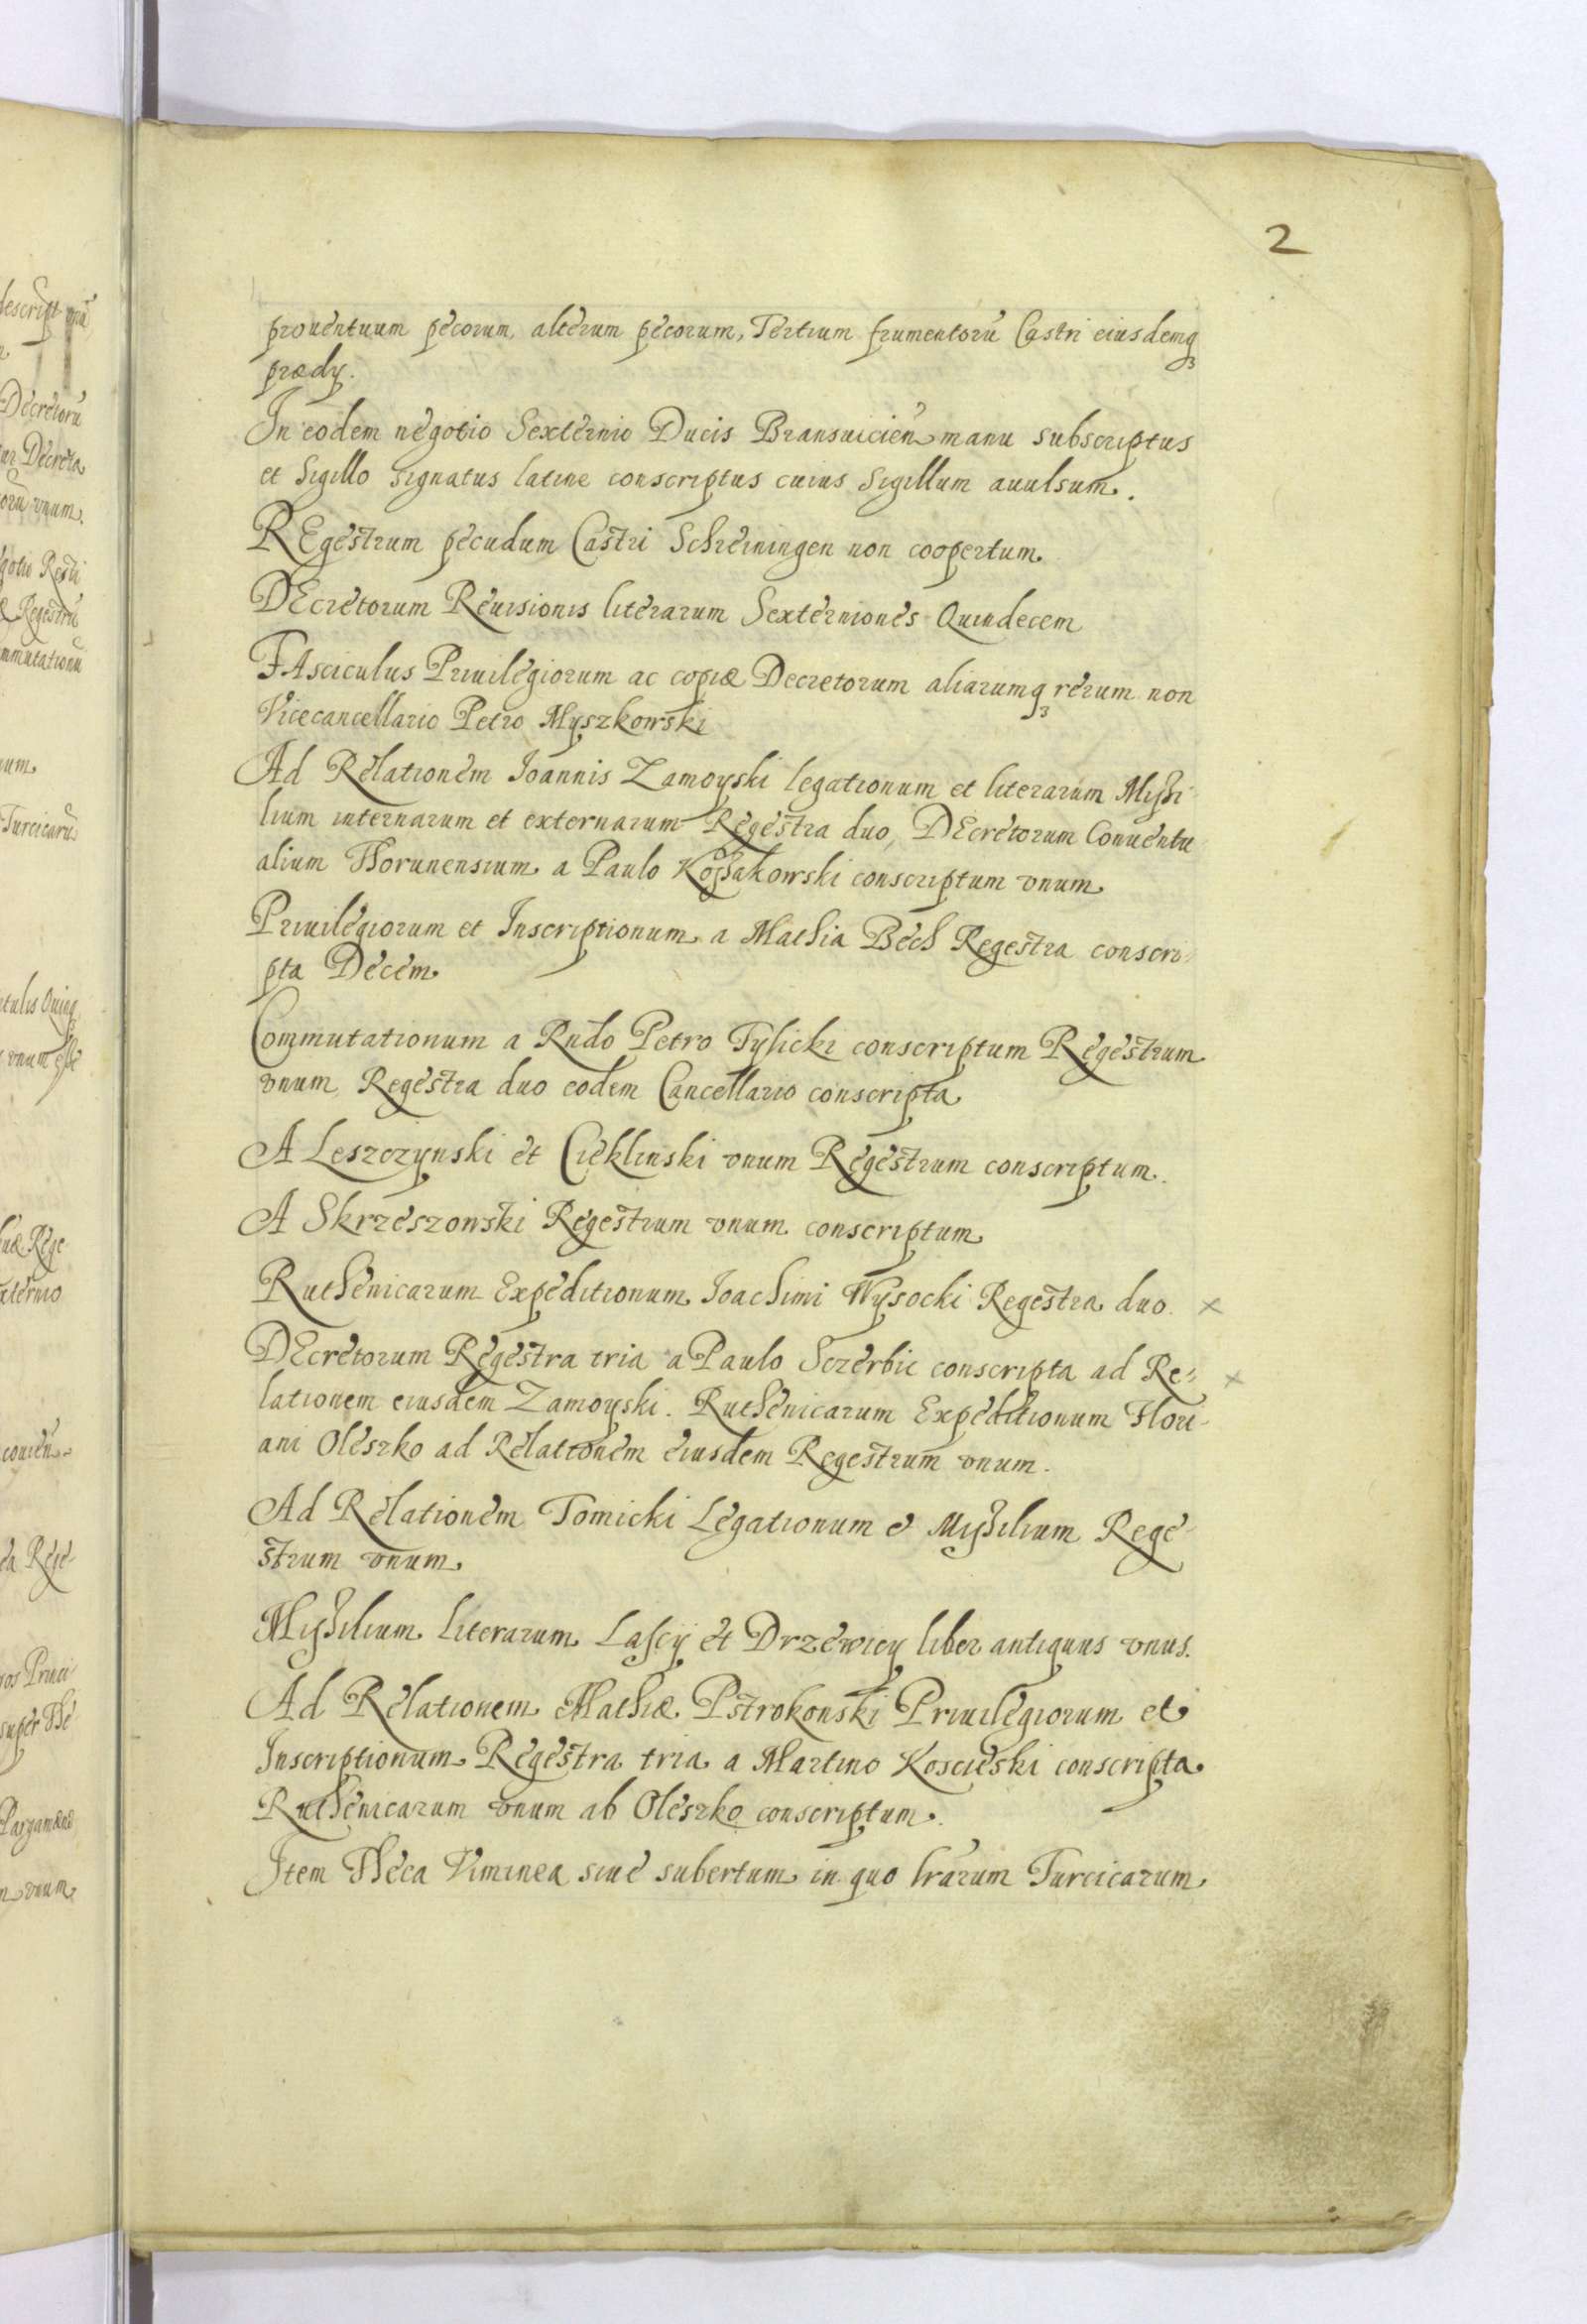 2
prouentuum pecorum, alterum pecorum, Tertium frumentorũ Castri eiusdemq3
prædÿ.
In eodem negotio Sexternio Ducis Bransuicien manu subscriptus
et Sigillo signatus latine conscriptus cuius Sigillum auulsum.
REgestrum pecudum Castri Schreiningen non coopertum
DEcretorum Reuisionis literarum Sexterniones Quindecem
FAsciculus Priuilegiorum ac copiæ Decretorum aliarumq3 rerum non
Vicecancellario Petro Myszkowski
Ad Relationem Ioannis Zamoyski legationum et literarum Missi-
lium internarum et externarum Regestra duo, DEcretorum Conuentu
alium Thorunensium a Paulo Kossakowski conscriptum vnum
Priuilegiorum et Inscriptionum a Mathia Bech Regestra conscri-
pta Decem
Commutationum a Rndo Petro Tylicki conscriptum Regestrum
vnum Regestra duo eodem Cancellario conscripta
A Leszczynski et Cieklinski vnum Regestrum conscriptum.
A Skrzeszowski Regestrum vnum conscriptum
Ruthenicarum Expeditionum Ioachimi Wysocki Regestra duo. x
DEcretorum Regestra tria a Paulo Sczerbic conscripta ad Re- x
lationem eiusdem Zamoyski. Ruthenicarum Expeditionum Flori-
ani Oleszko ad Relationem eiusdem Regestrum vnum.
Ad Relationem Tomicki Legationum & Missilium Rege-
strum vnum
Missilium Literarum Lascÿ et Drzewicÿ liber antiquus vnus.
Ad Relationem Mathiæ Pstrokonski Priuilegiorum et
Inscriptionum Regestra tria a Martino Koscieski conscripta
Ruthenicarum vnum ab Oleszko conscriptum.
Item Theca Viminea siue subertum in quo lrarum Turcicarum